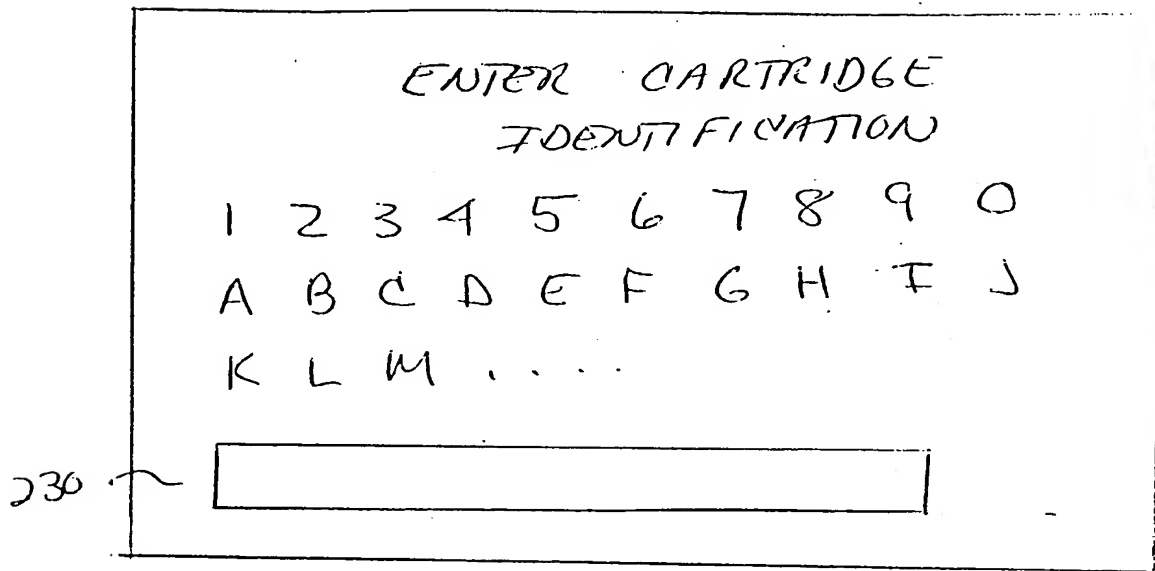 ENTER CARTRIDGE
IDENTIFICATION
1 2 3 4 5 6 7 8 9 0
A B C D E F G H I J
K L M . . . .
230